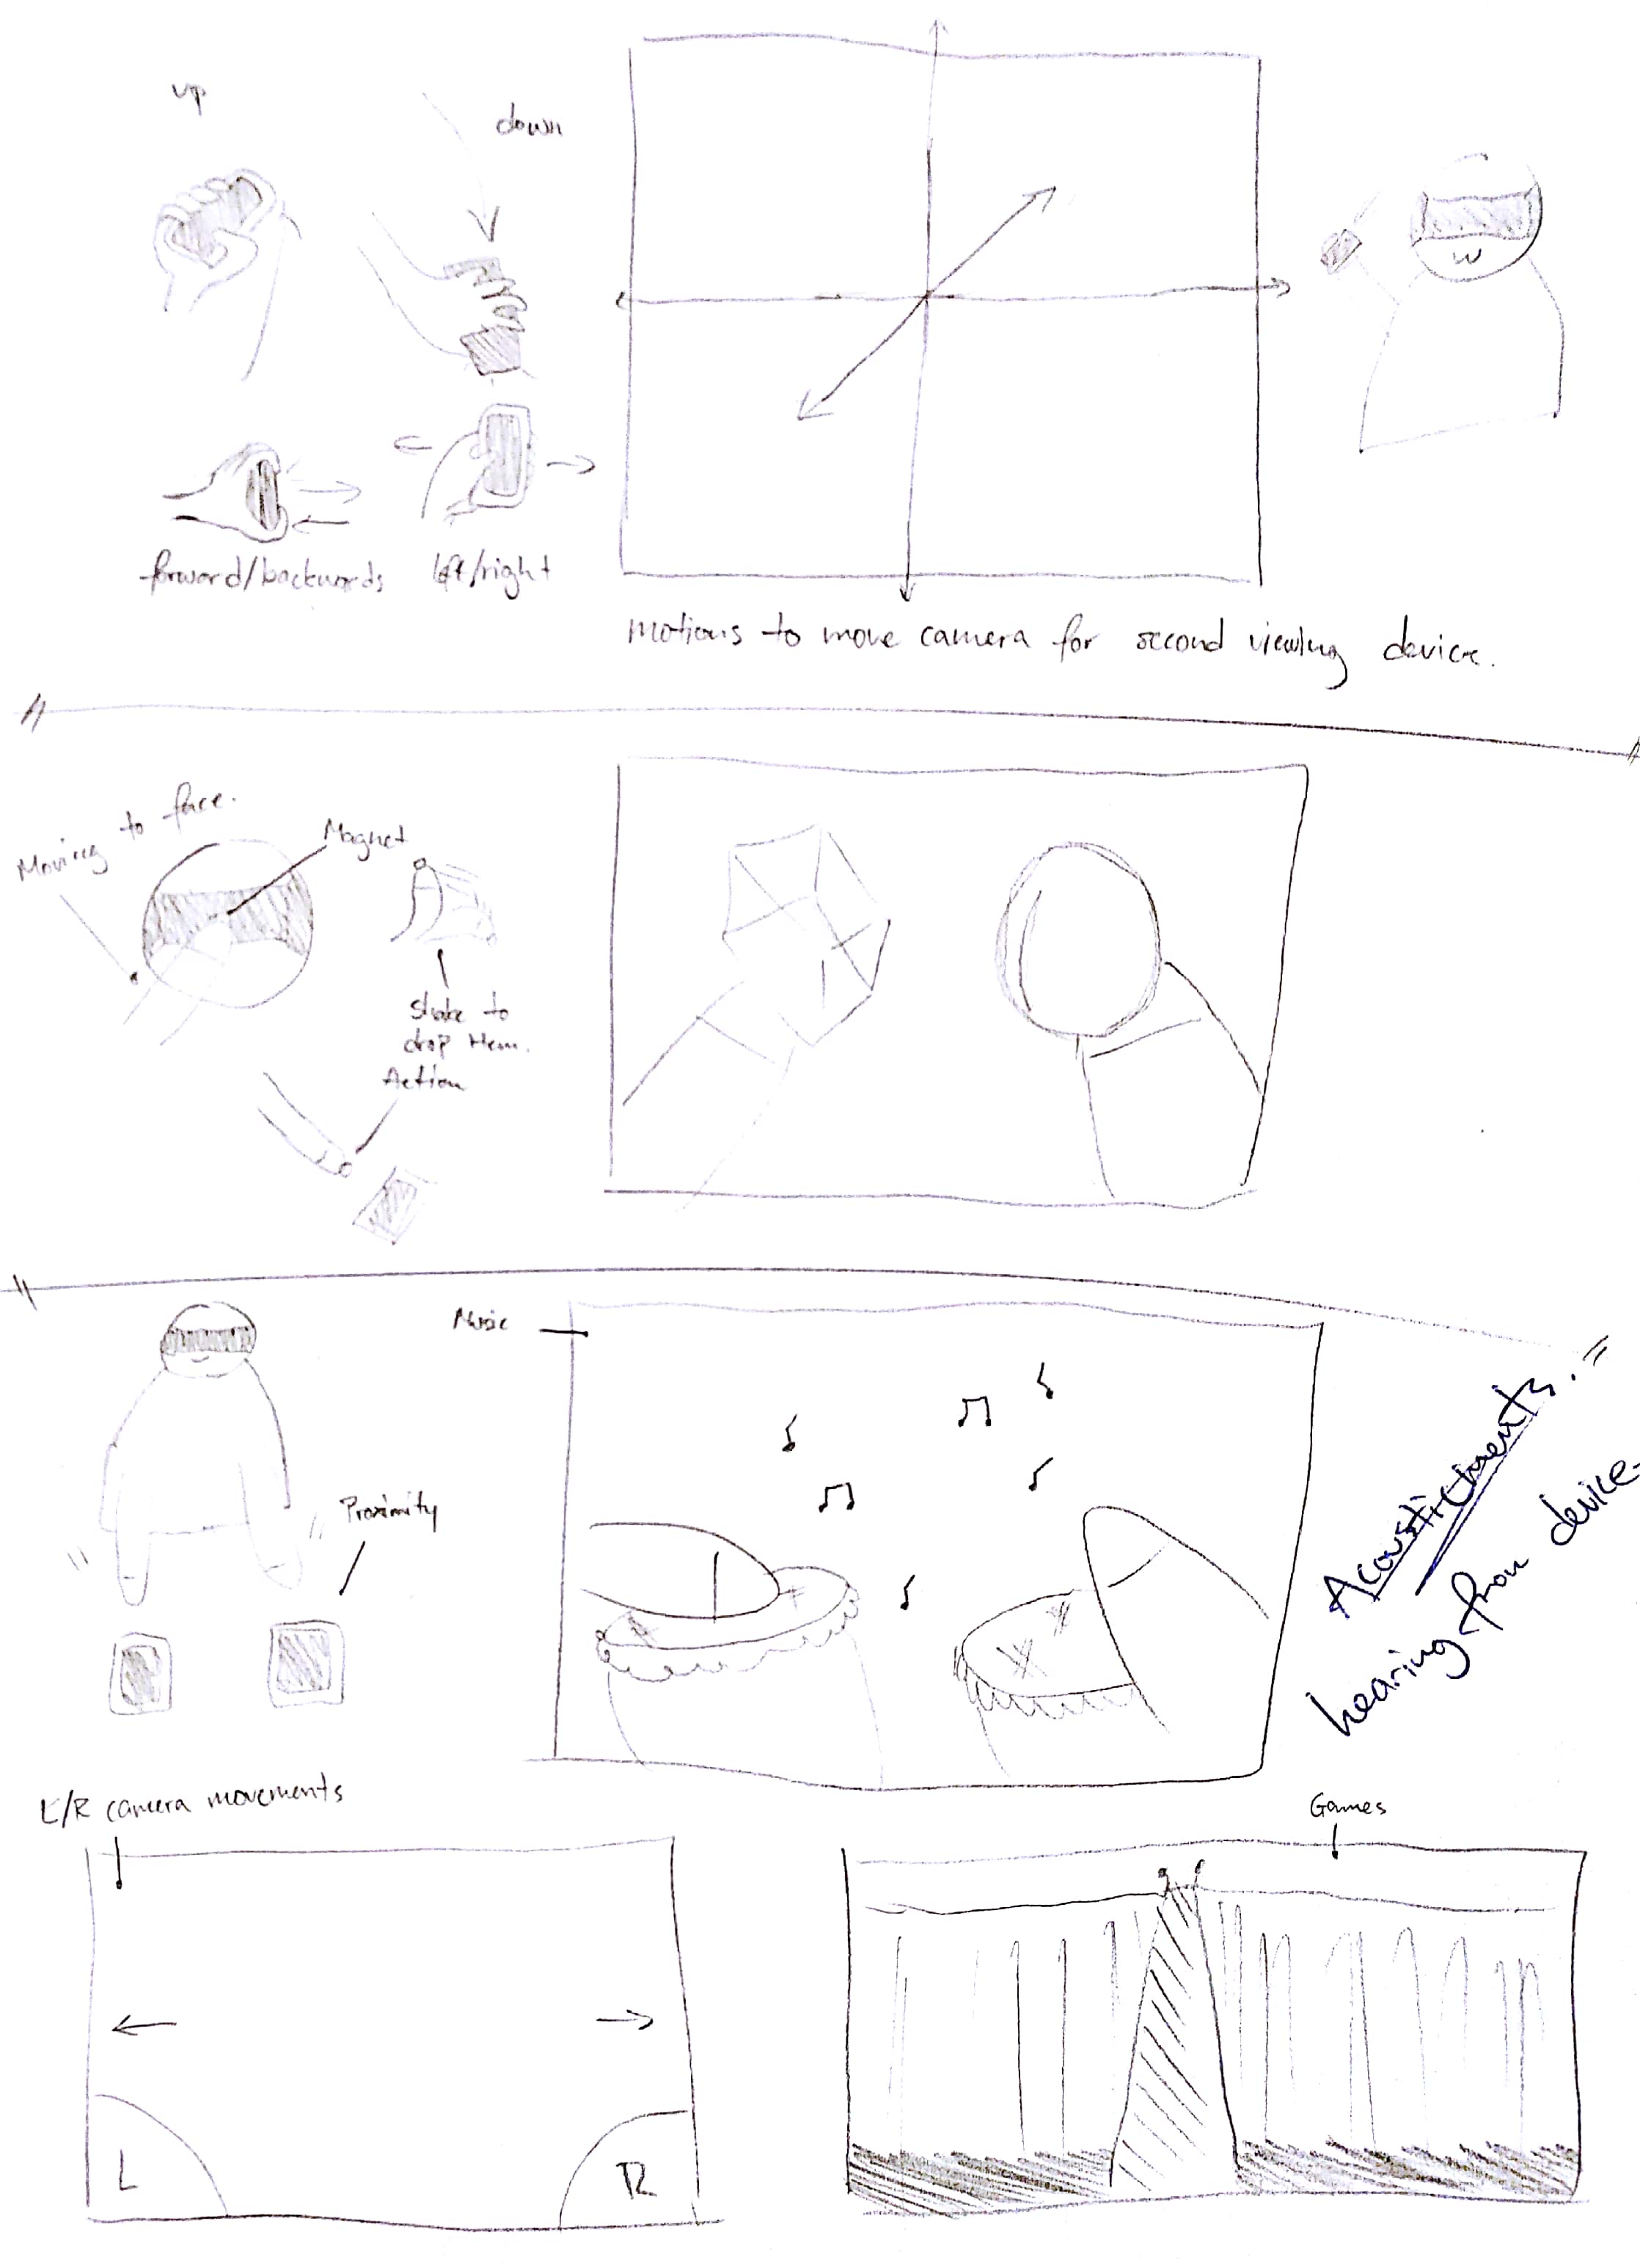 up
down
forward/backwards
left/right
motions to move camera for second viewing device.
Moving to face.
Magnet
Shake to
drop them.
Action
Music
Proximity
Acoustichments.
hearing from device.
L/R camera movements
L
R
Games